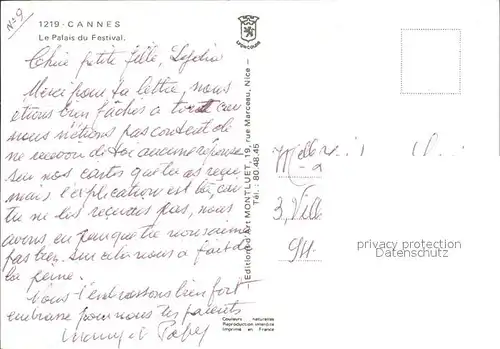 N=9
1219 - CANNES
Le Palais du Festival.
Chère petite fille,
Merci pour ta lettre, nous
étions bien fâchés à tort car
nous n'étions pas content de
ne recevoir de toi aucune réponse
sur nos cartes que tu as reçu
mais l'explication est là, car
tu ne les reçevais pas, nous
avons eu
pas bien. sur cela nous a fait de
la peine.
Nous t'embrassons bien fort
embrasse pour nous tes parents
Mamy et Papy
LYONCOLOR
Editions d'Art MONTLUET, 19, rue Marceau, Nice -
Tél. : 80.48.45
Couleurs naturelles
Reproduction interdite
Imprimé en France
3, Vill
94
privacy protection
Datenschutz